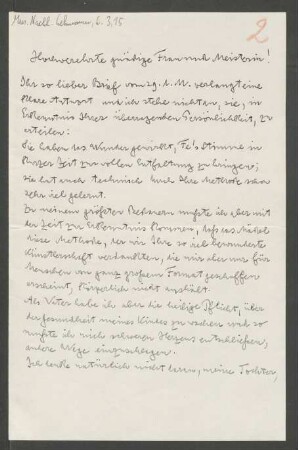 2
Hochverehrte gnädige Frau und Meisterin!
Ihr so lieber Brief vom 29. v. M. verlangt eine
klare Antwort und ich stehe nicht an, sie, in
Erkenntnis Ihrer überragenden Persönlichkeit, zu
erteilen.
Sie haben das Wunder gewirkt, Stimme in
kurzer Zeit zur vollen Entfaltung zu bringen;
sie hat auch technisch durch Ihre Methode schon
sehr viel gelernt.
Zu meinem größten Bedauern mußte ich aber mit
der Zeit zur Erkenntnis kommen, daß sie
Methode, der wir Ihre so viel bewunderte
Künstlerschaft verdanken, die mir aber nur für
Menschen von ganz großem Format geschaffen
erscheint, körperlich nicht aushält.
Als Vater habe ich aber die heilige Pflicht, über
der Gesundheit meines Kindes zu wachen und so
mußte ich mich schweren Herzens entschließen,
andere Wege einzuschlagen.
Ich denke natürlich nicht daran, meine Tochter,